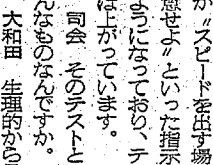 が〝スピードを出す場
意せよ〟といった指示
ようになっており、テ
は上がっています。
司会　そのテストと
んなものなんですか。
大和田　生理的から